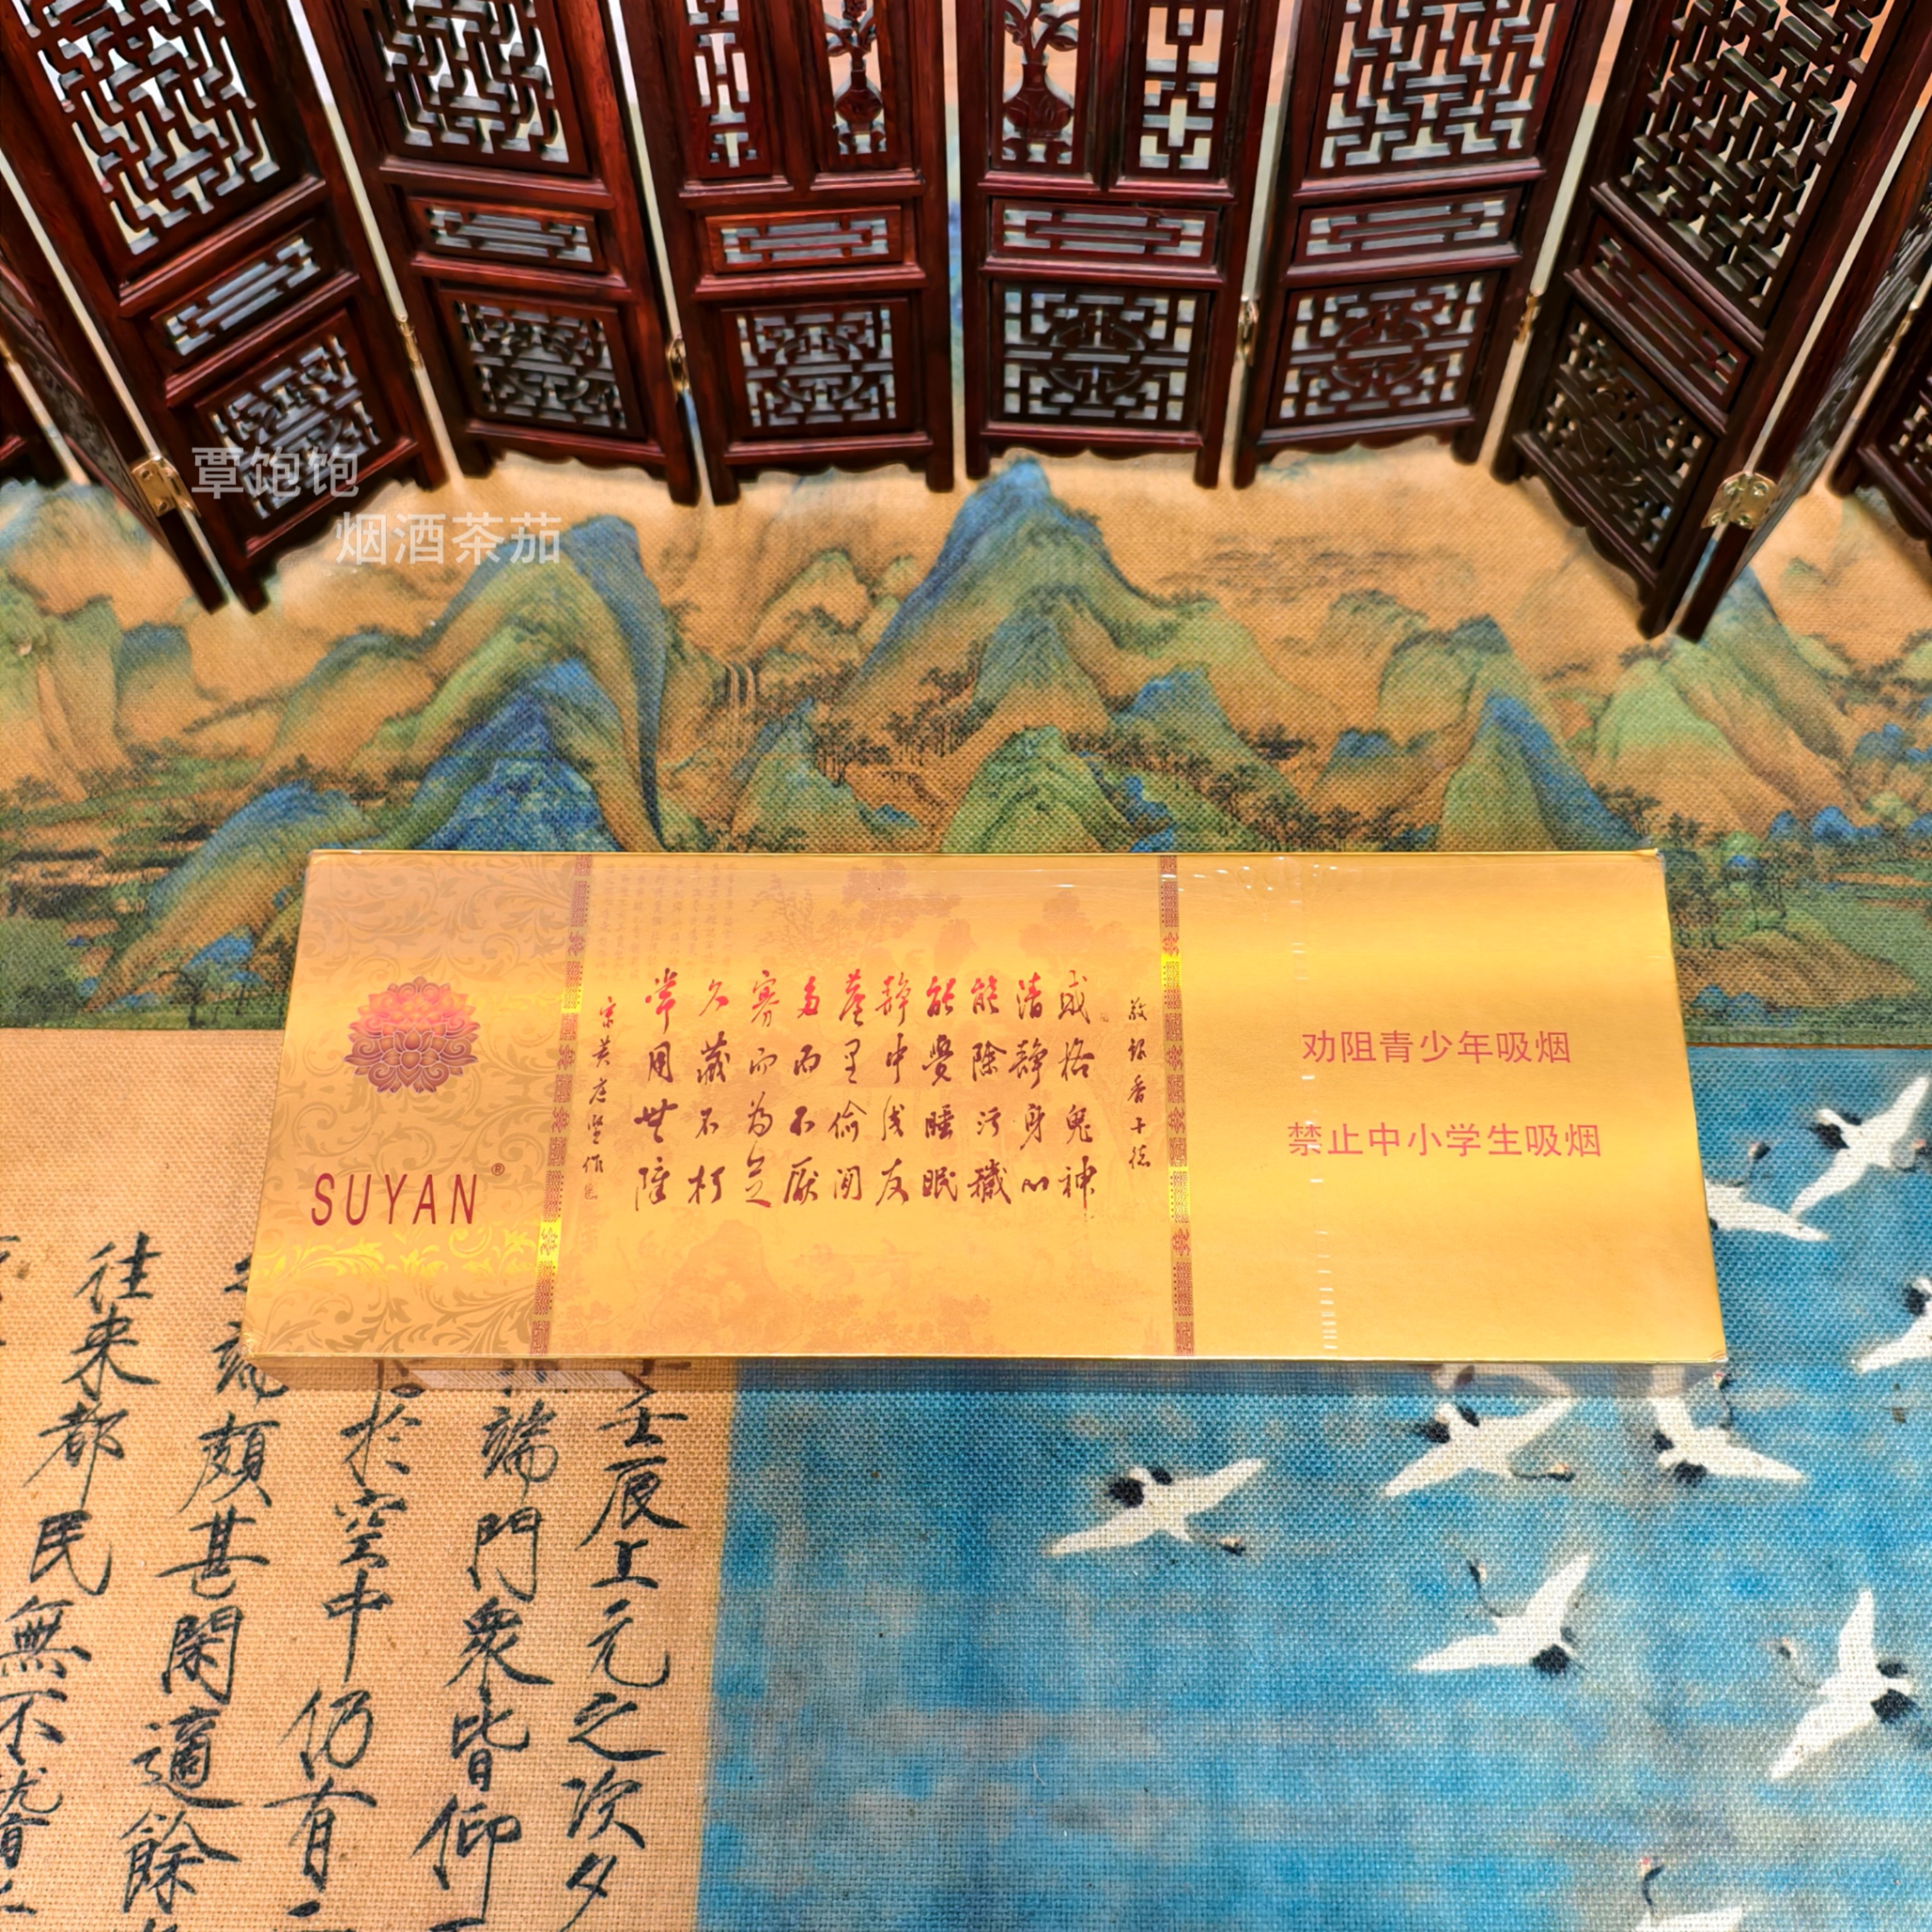 覃饱饱
烟酒茶茄
SUYAN®
敬録香十德
感格鬼神
清静身心
能除污穢
能覺睡眠
静中成友
塵里偷閒
多而不厭
寡而為足
久藏不朽
常用無障
宋黄庭堅作
劝阻青少年吸烟
禁止中小学生吸烟
壬辰上元之次夕
端門衆皆仰
於空中仍有
端頗甚閑適餘
往来都民無不稽